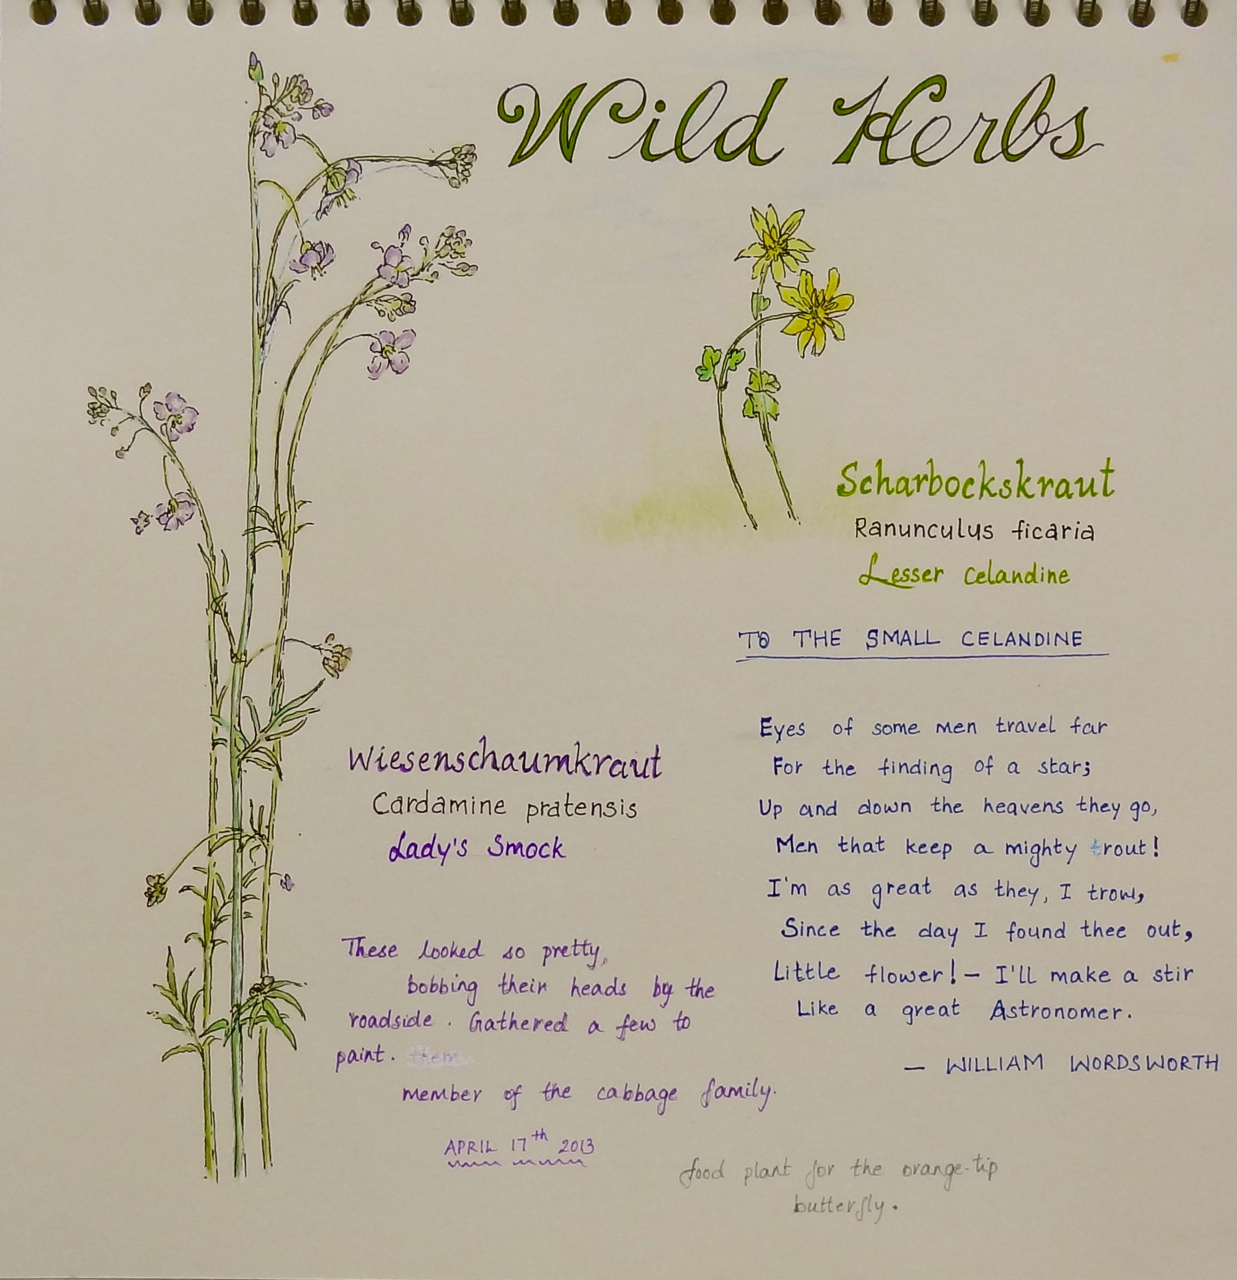 Wild Herbs
Scharbockskraut
Ranunculus ficaria
Lesser Celandine
TO THE SMALL CELANDINE
Eyes of some men travel far
For the finding of a star;
Up and down the heavens they go,
Men that keep a mighty trout!
I'm as great as they, I trow,
Since the day I found thee out,
Little flower! — I'll make a stir
Like a great Astronomer.
— WILLIAM WORDSWORTH
Wiesenschaumkraut
Cardamine pratensis
Lady's Smock
These looked so pretty,
bobbing their heads by the
roadside. Gathered a few to
paint. them
member of the cabbage family.
APRIL 17th 2013
food plant for the orange-tip
butterfly.